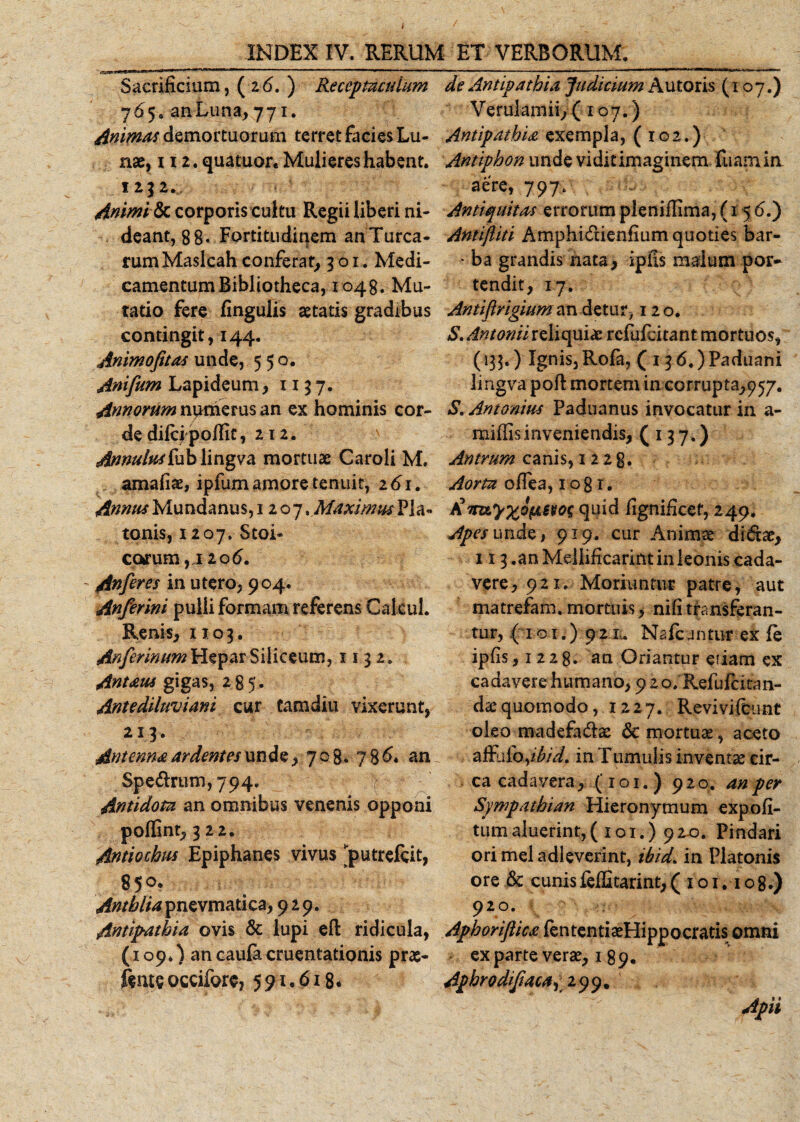 INDEX IV. RERUM ET VERBORUM.
Sacrificium, (26.) Receptaculum
765. an Luna, 771.
Animas demortuorum terret facies Lu-
næ, 112. quatuor. Mulieres habent.
1232.
Animi & corporis cultu Regii liberi ni-
deant, 88. Fortitudinem an Turca-
rum Maslcah conferat, 301. Medi-
camentum Bibliotheca, 1048. Mu-
tatio fere ſingulis ætatis gradibus
contingit, 144.
Animoſitas unde, 550.
Aniſum Lapideum, 1137.
Annorum numerus an ex hominis cor-
de diſci poſſit, 212.
Annulus ſub lingva mortuæ Caroli M.
amaſiæ, ipſum amore tenuit, 261.
Annus Mundanus, 1207. Maximus Pla-
tonis, 1207. Stoi-
corum, 1206.
Anſeres in utero, 904.
Anſerini pulli formam referens Calcul.
Renis, 1103.
Anſerinum Hepar Siliceum, 1132.
Antæus gigas, 285.
Antediluviani cur tamdiu vixerunt,
213.
Antennæ ardentes unde, 708. 786. an
Spectrum, 794.
Antidota an omnibus venenis opponi
poſſint, 322.
Antiochus Epiphanes vivus putreſcit,
850.
Anthlia pnevmatica, 929.
Antipathia ovis & lupi eſt ridicula,
(109.) an cauſa cruentationis præ-
ſente occiſore, 591. 618.
de Antipathia Judicium Autoris (107.)
Verulamii, (107.)
Antipathiæ exempla, (102.)
Antiphon unde vidit imaginem ſuam in
aëre, 797.
Antiquitas errorum pleniſſima, (156.)
Antiſtiti Amphictienſium quoties bar-
ba grandis nata, ipſis malum por-
tendit, 17.
Antiſtrigium an detur, 120.
S. Antonii reliquiæ reſuſcitant mortuos,
(133.) Ignis, Roſa, (136.) Paduani
lingva poſt mortem incorrupta, 957.
S. Antonius Paduanus invocatur in a-
miſſis inveniendis, (137.)
Antrum canis, 1228.
Aorta oſſea, 1081.
Ἀπαγχόμενος quid ſignificet, 249.
Apes unde, 919. cur Animæ dictæ,
113. an Mellificarint in leonis cada-
vere, 921. Moriuntur patre, aut
matrefam. mortuis, niſi transferan-
tur, (101.) 921. Naſcuntur ex ſe
ipſis, 1228. an Oriantur etiam ex
cadavere humano, 920. Reſuſcitan-
dæ quomodo, 1227. Reviviſcunt
oleo madefactæ & mortuæ, aceto
affuſo, ibid. in Tumulis inventæ cir-
ca cadavera, (101.) 920. an per
Sympathian Hieronymum expoſi-
tum aluerint, (101.) 920. Pindari
ori mel adleverint, ibid. in Platonis
ore & cunis ſeſſitarint, (101. 108.)
920.
Aphoriſticæ ſententiæ Hippocratis omni
ex parte veræ, 189.
Aphrodiſiaca, 299.
Apii